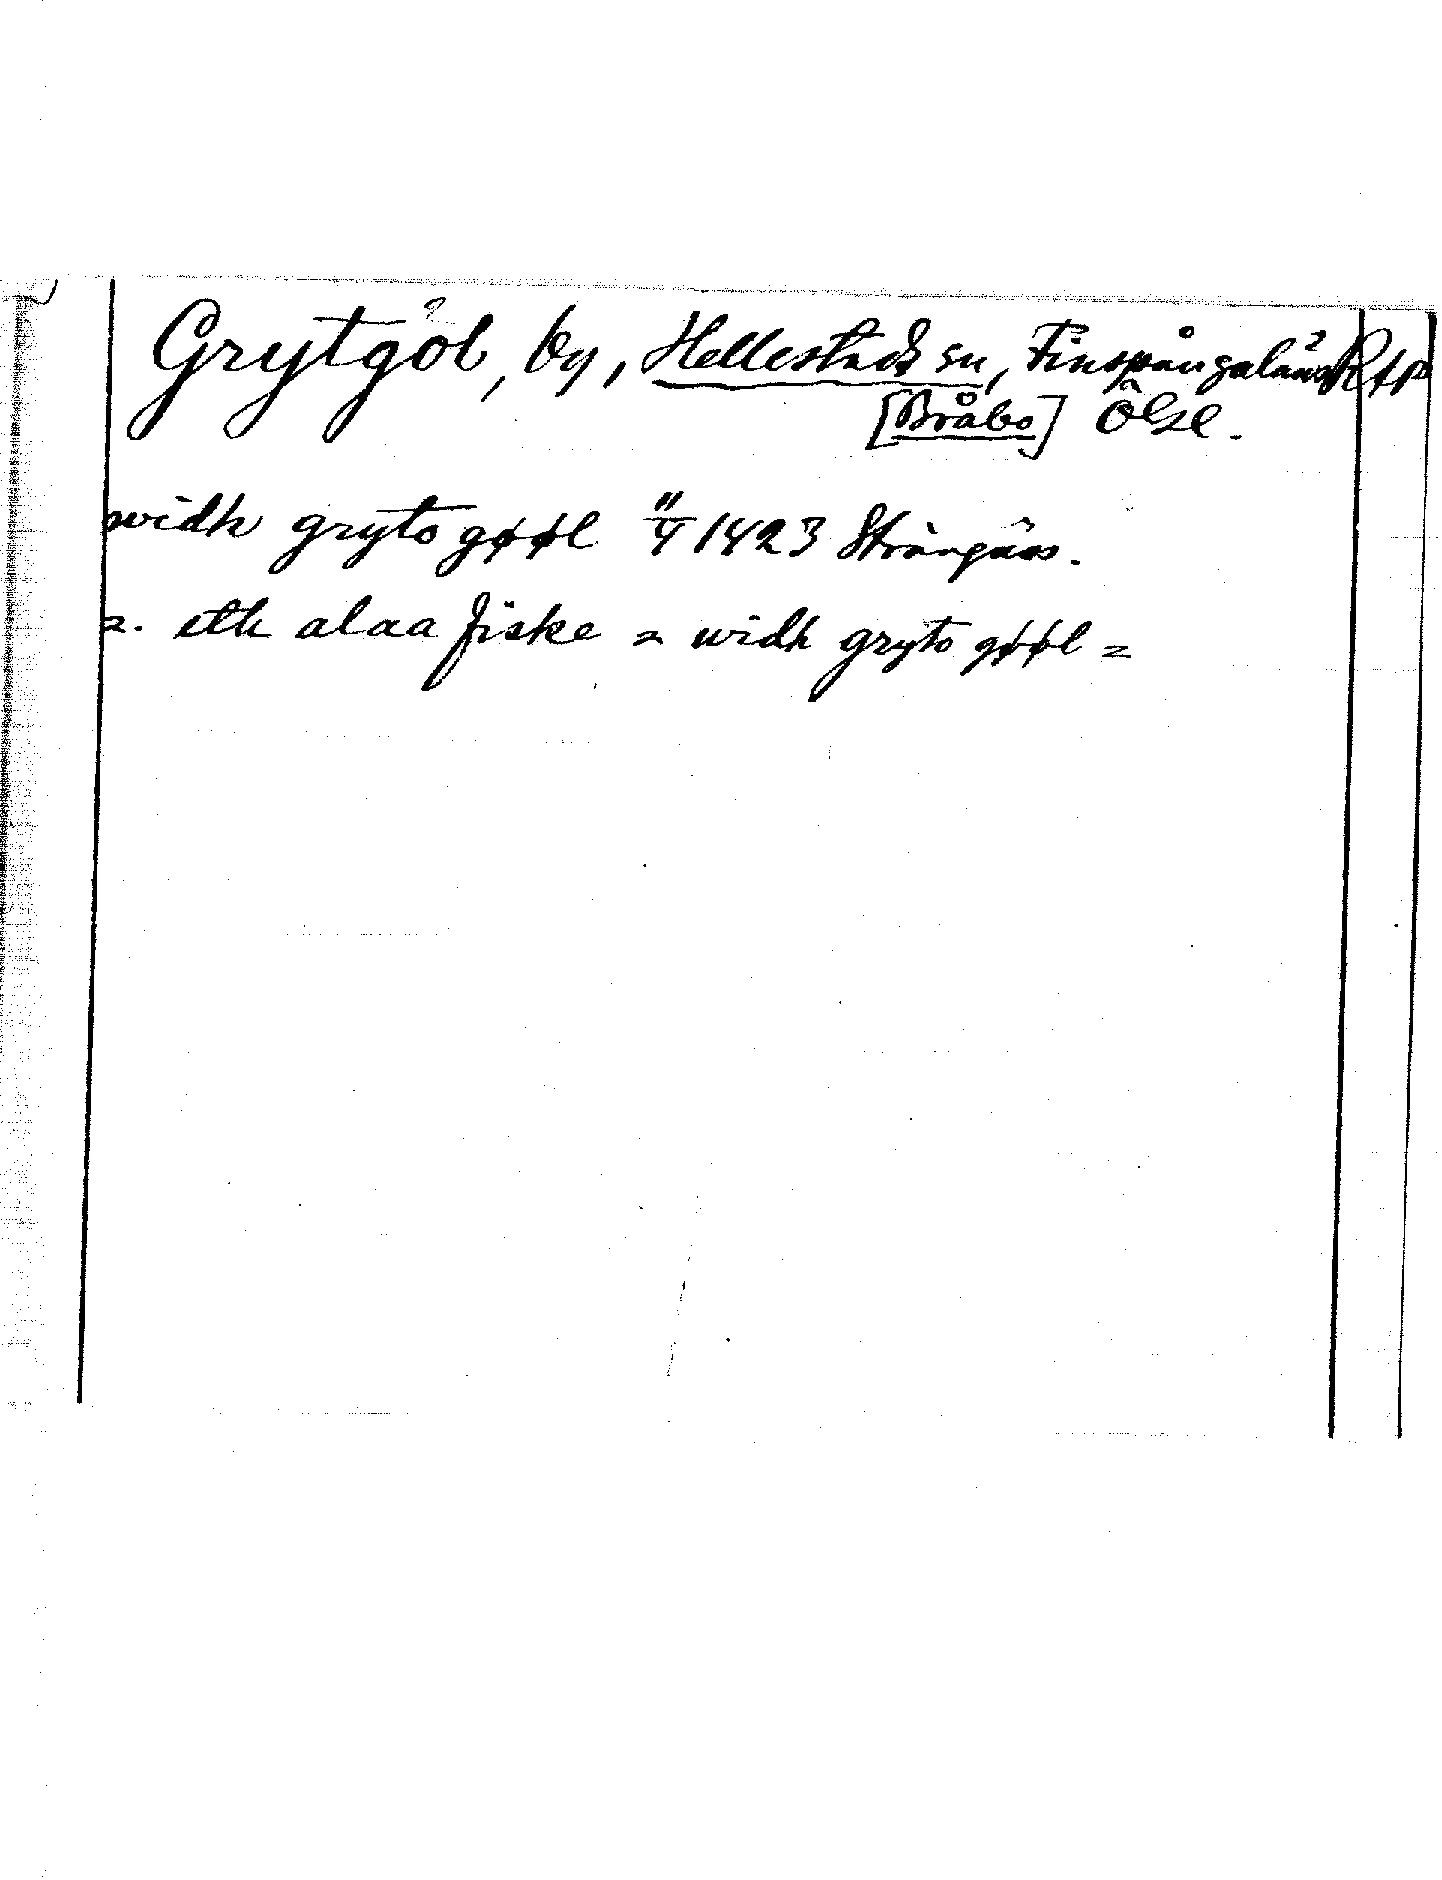 Grytgöl, by, Hellestads sn, Finspångaläns RAp
[Bråbo] Ögl.
widh gryto gøøl 11/4 1423 Strängnäs.
=. eth alaa fiske = widh gryto gøøl =